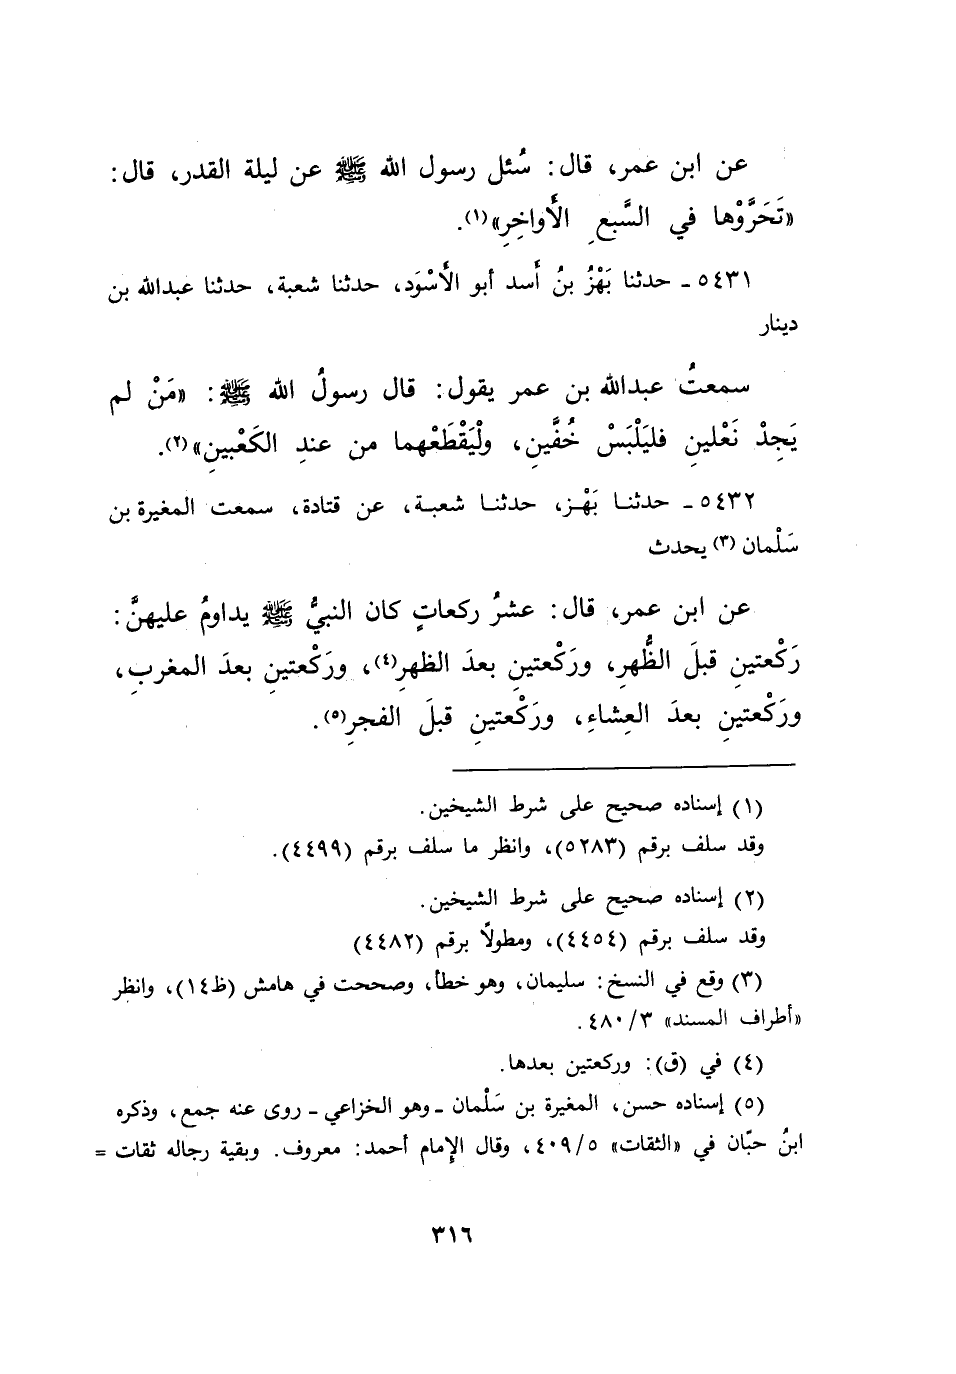 عن ابن عمر، قال: سُئل رسول الله ﷺ عن ليلة القدر، قال:
«تَحَرَّوْها في السَّبعِ الأَواخِرِ»(١).
٥٤٣١ ـ حدثنا بَهْزُ بنُ أَسد أبو الأَسْوَد، حدثنا شعبة، حدثنا عبدالله بن
دينار
سمعتُ عبدالله بن عمر يقول: قال رسولُ الله ﷺ: «مَنْ لم
يَجِدْ نَعْلينِ فليَلْبَسْ خُفَّينِ، ولْيَقْطَعْهما من عندِ الكَعْبينِ»(٢).
٥٤٣٢ ـ حدثنا بَهْز، حدثنا شعبة، عن قتادة، سمعت المغيرة بن
سَلْمان(٣) يحدث
عن ابن عمر، قال: عشرُ ركعاتٍ كان النبيُّ ﷺ يداومُ عليهنَّ:
رَكْعتينِ قبلَ الظُّهرِ، ورَكْعتينِ بعدَ الظهرِ(٤)، ورَكْعتينِ بعدَ المغربِ،
ورَكْعتينِ بعدَ العِشاءِ، ورَكْعتينِ قبلَ الفجرِ(٥).
(١) إسناده صحيح على شرط الشيخين.
وقد سلف برقم (٥٢٨٣)، وانظر ما سلف برقم (٤٤٩٩).
(٢) إسناده صحيح على شرط الشيخين.
وقد سلف برقم (٤٤٥٤)، ومطولاً برقم (٤٤٨٢)
(٣) وقع في النسخ: سليمان، وهو خطأ، وصححت في هامش (ظ١٤)، وانظر
«أطراف المسند» ٤٨٠/٣.
(٤) في (ق): وركعتين بعدها.
(٥) إسناده حسن، المغيرة بن سَلْمان ـ وهو الخزاعي ـ روى عنه جمع، وذكره
ابنُ حبّان في «الثقات» ٤٠٩/٥، وقال الإمام أحمد: معروف. وبقية رجاله ثقات =
٣١٦